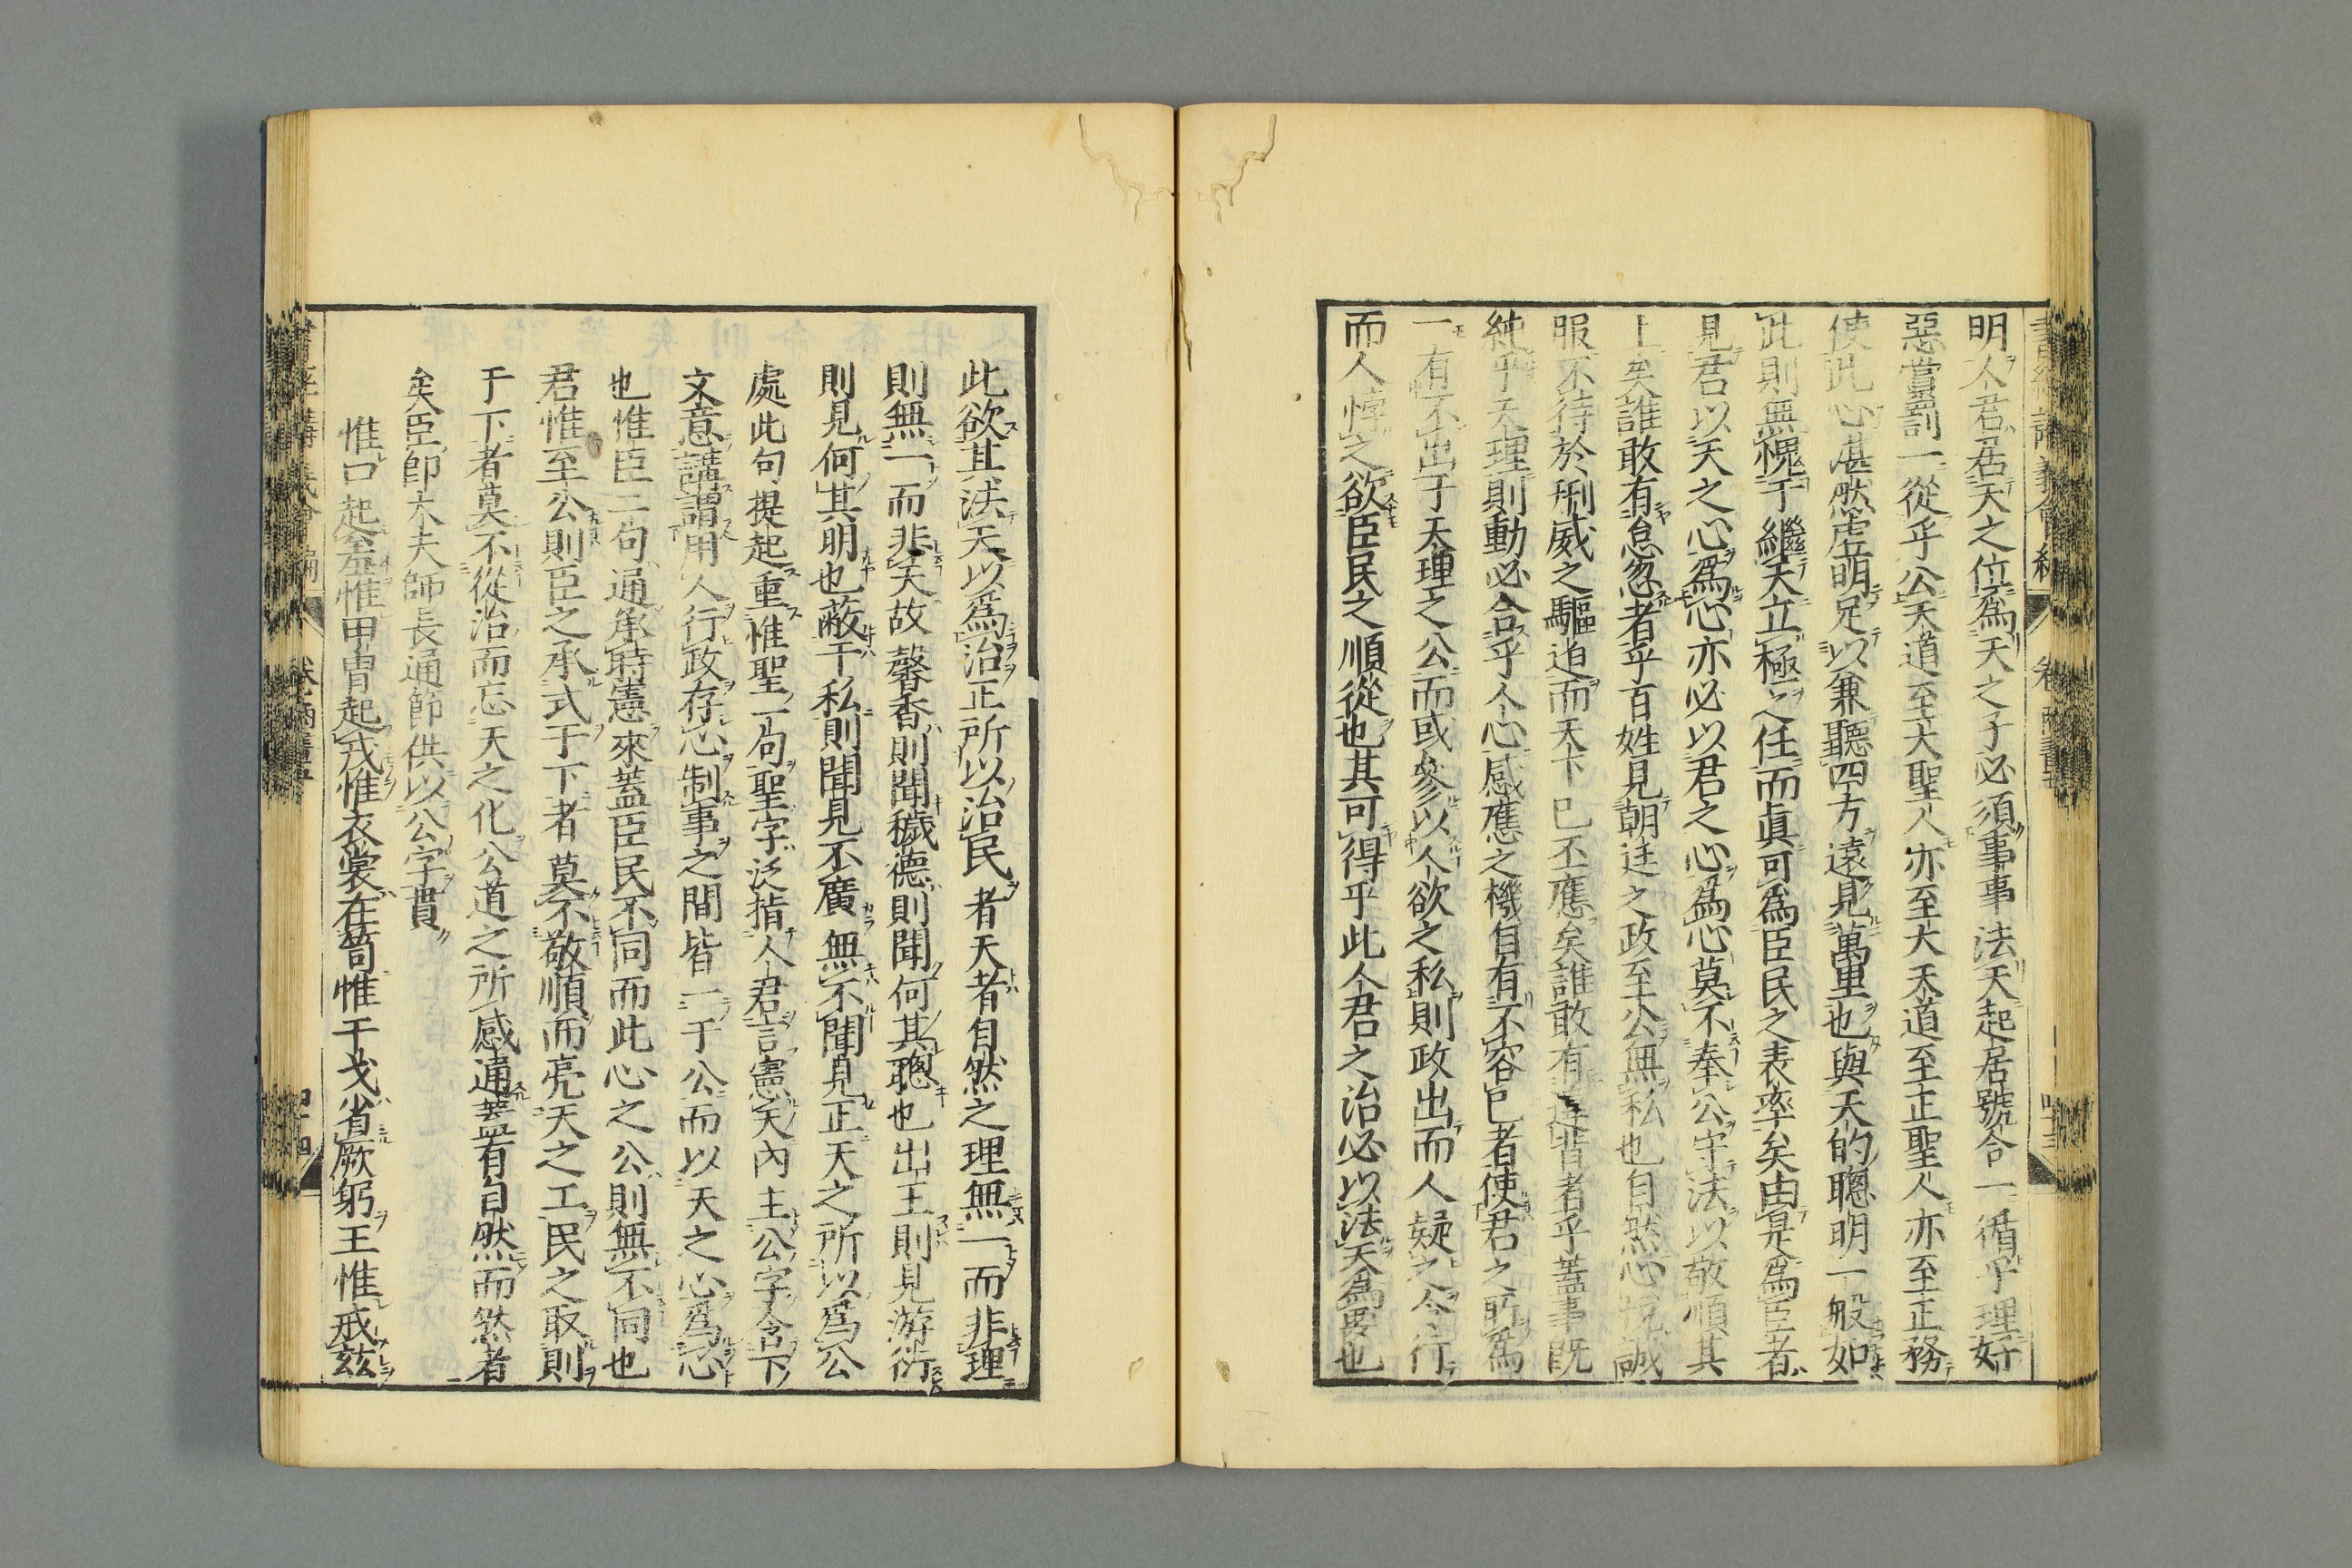 明人君居天之位為天之子必須事事法天起居號令一循乎理好
惡賞罰一從乎公天道至大聖人亦至大天道至正聖人亦至正務
使此心湛然虛明足以兼聽四方遠見萬里也與天的聰明一般如
此則無愧于繼天立極之任而眞可為臣民之表率矣由是為臣者
見君以天之心為心亦必以君之心為心莫不奉公守法以敬順其
上矣誰敢有怠忽者乎百姓見朝廷之政至公無私也自然心悅誠
服不待於刑威之驅迫而天下已丕應矣誰敢有違背者乎蓋事既
純乎天理則動必合乎人心感應之機自有不容已者使君之所為
一有不出于天理之公而或參以人欲之私則政出而人疑之令行
而人悖之欲臣民之順從也其可得乎此人君之治必以法天為要也
此欲其法天以為治正所以治民者天者自然之理無一而非理
則無一而非天故馨香則聞穢德則聞何其聰也出王則見游衍
則見何其明也蔽于私則聞見不廣無不聞見正天之所以為公
處此句提起重惟聖一句聖字泛指人君言憲天內主公字含下
文意講謂用人行政存心制事之間皆一于公而以天之心為心
也惟臣二句通承時憲來蓋臣民不同而此心之公則無不同也
君惟至公則臣之承式于下者莫不敬順而亮天之工民之取則
于下者莫不從治而忘天之化公道之所感通蓋有自然而然者
矣臣卽大夫師長通節俱以公字貫
惟口起羞惟甲冑起戎惟衣裳在笥惟干戈省厥躬王惟戒茲